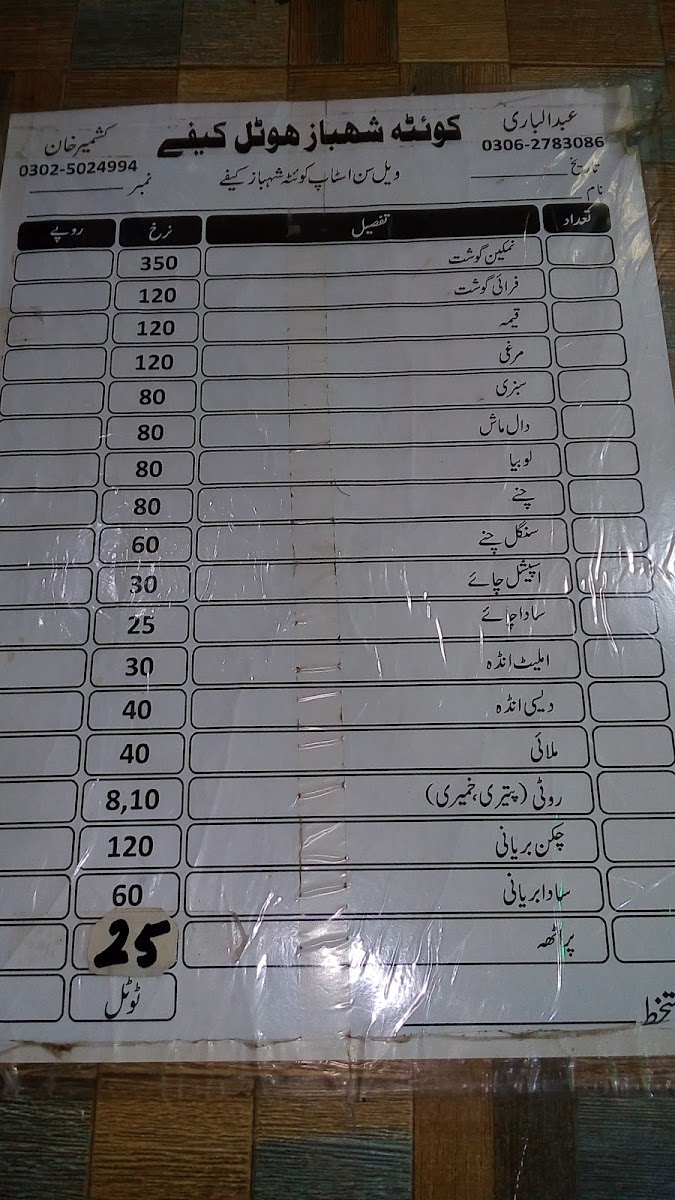 عبدالباری کوئٹہ شهباز هوٹل کیفے کشمیر خان
0306-2783086 0302-5024994
تاریخ ویل سن اسٹاپ کوئٹہ شہباز کیفے نمبر
نام
تعداد تفصیل نرخ روپے
نمکین گوشت 350
فرائی گوشت 120
قیمہ 120
مرغی 120
سبزی 80
دال ماش 80
لوبیا 80
چنے 80
سنگل چنے 60
اسپیشل چائے 30
سادا چائے 25
املیٹ انڈہ 30
دیسی انڈہ 40
ملائی 40
روٹی (پتیری، خمیری) 8,10
چکن بریانی 120
سادا بریانی 60
پراٹھہ 25
ٹوٹل